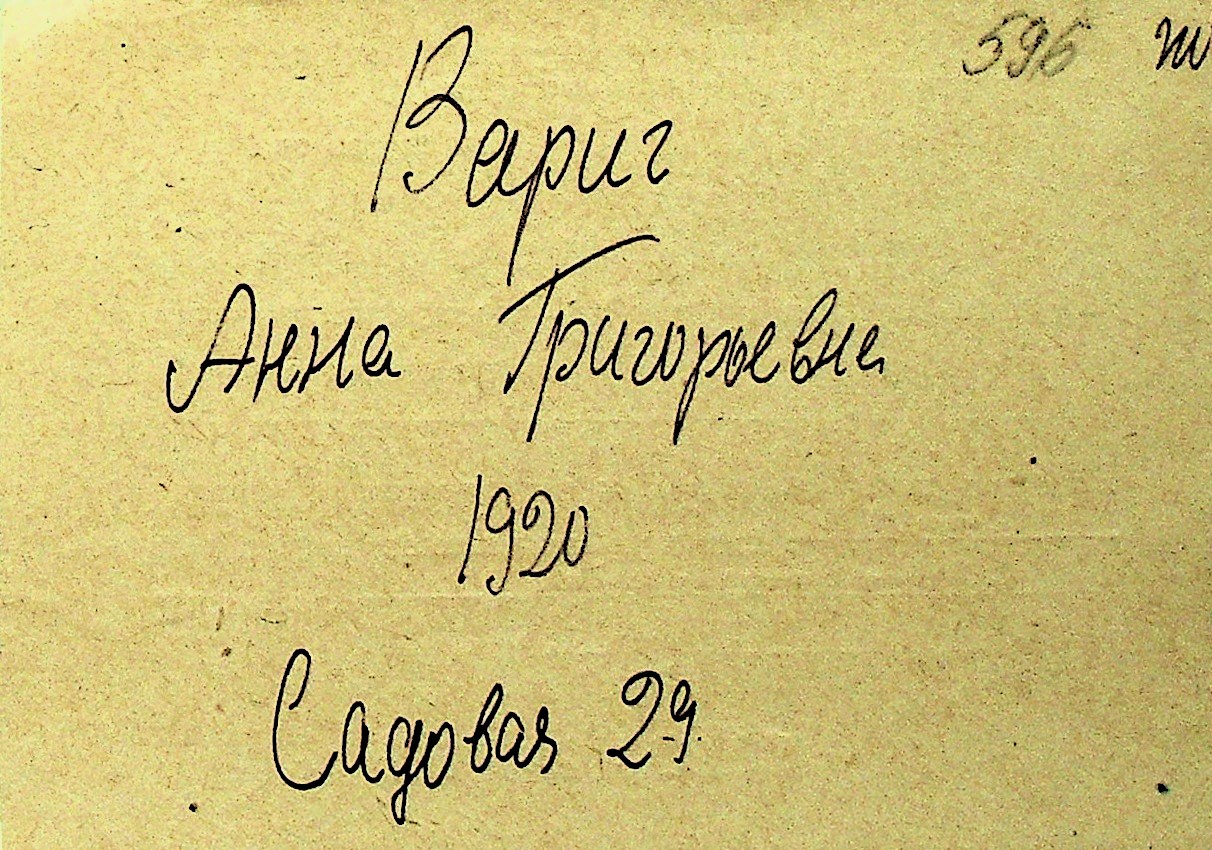 596
Вариг
Анна Григорьевна
1920
Садовая 29.